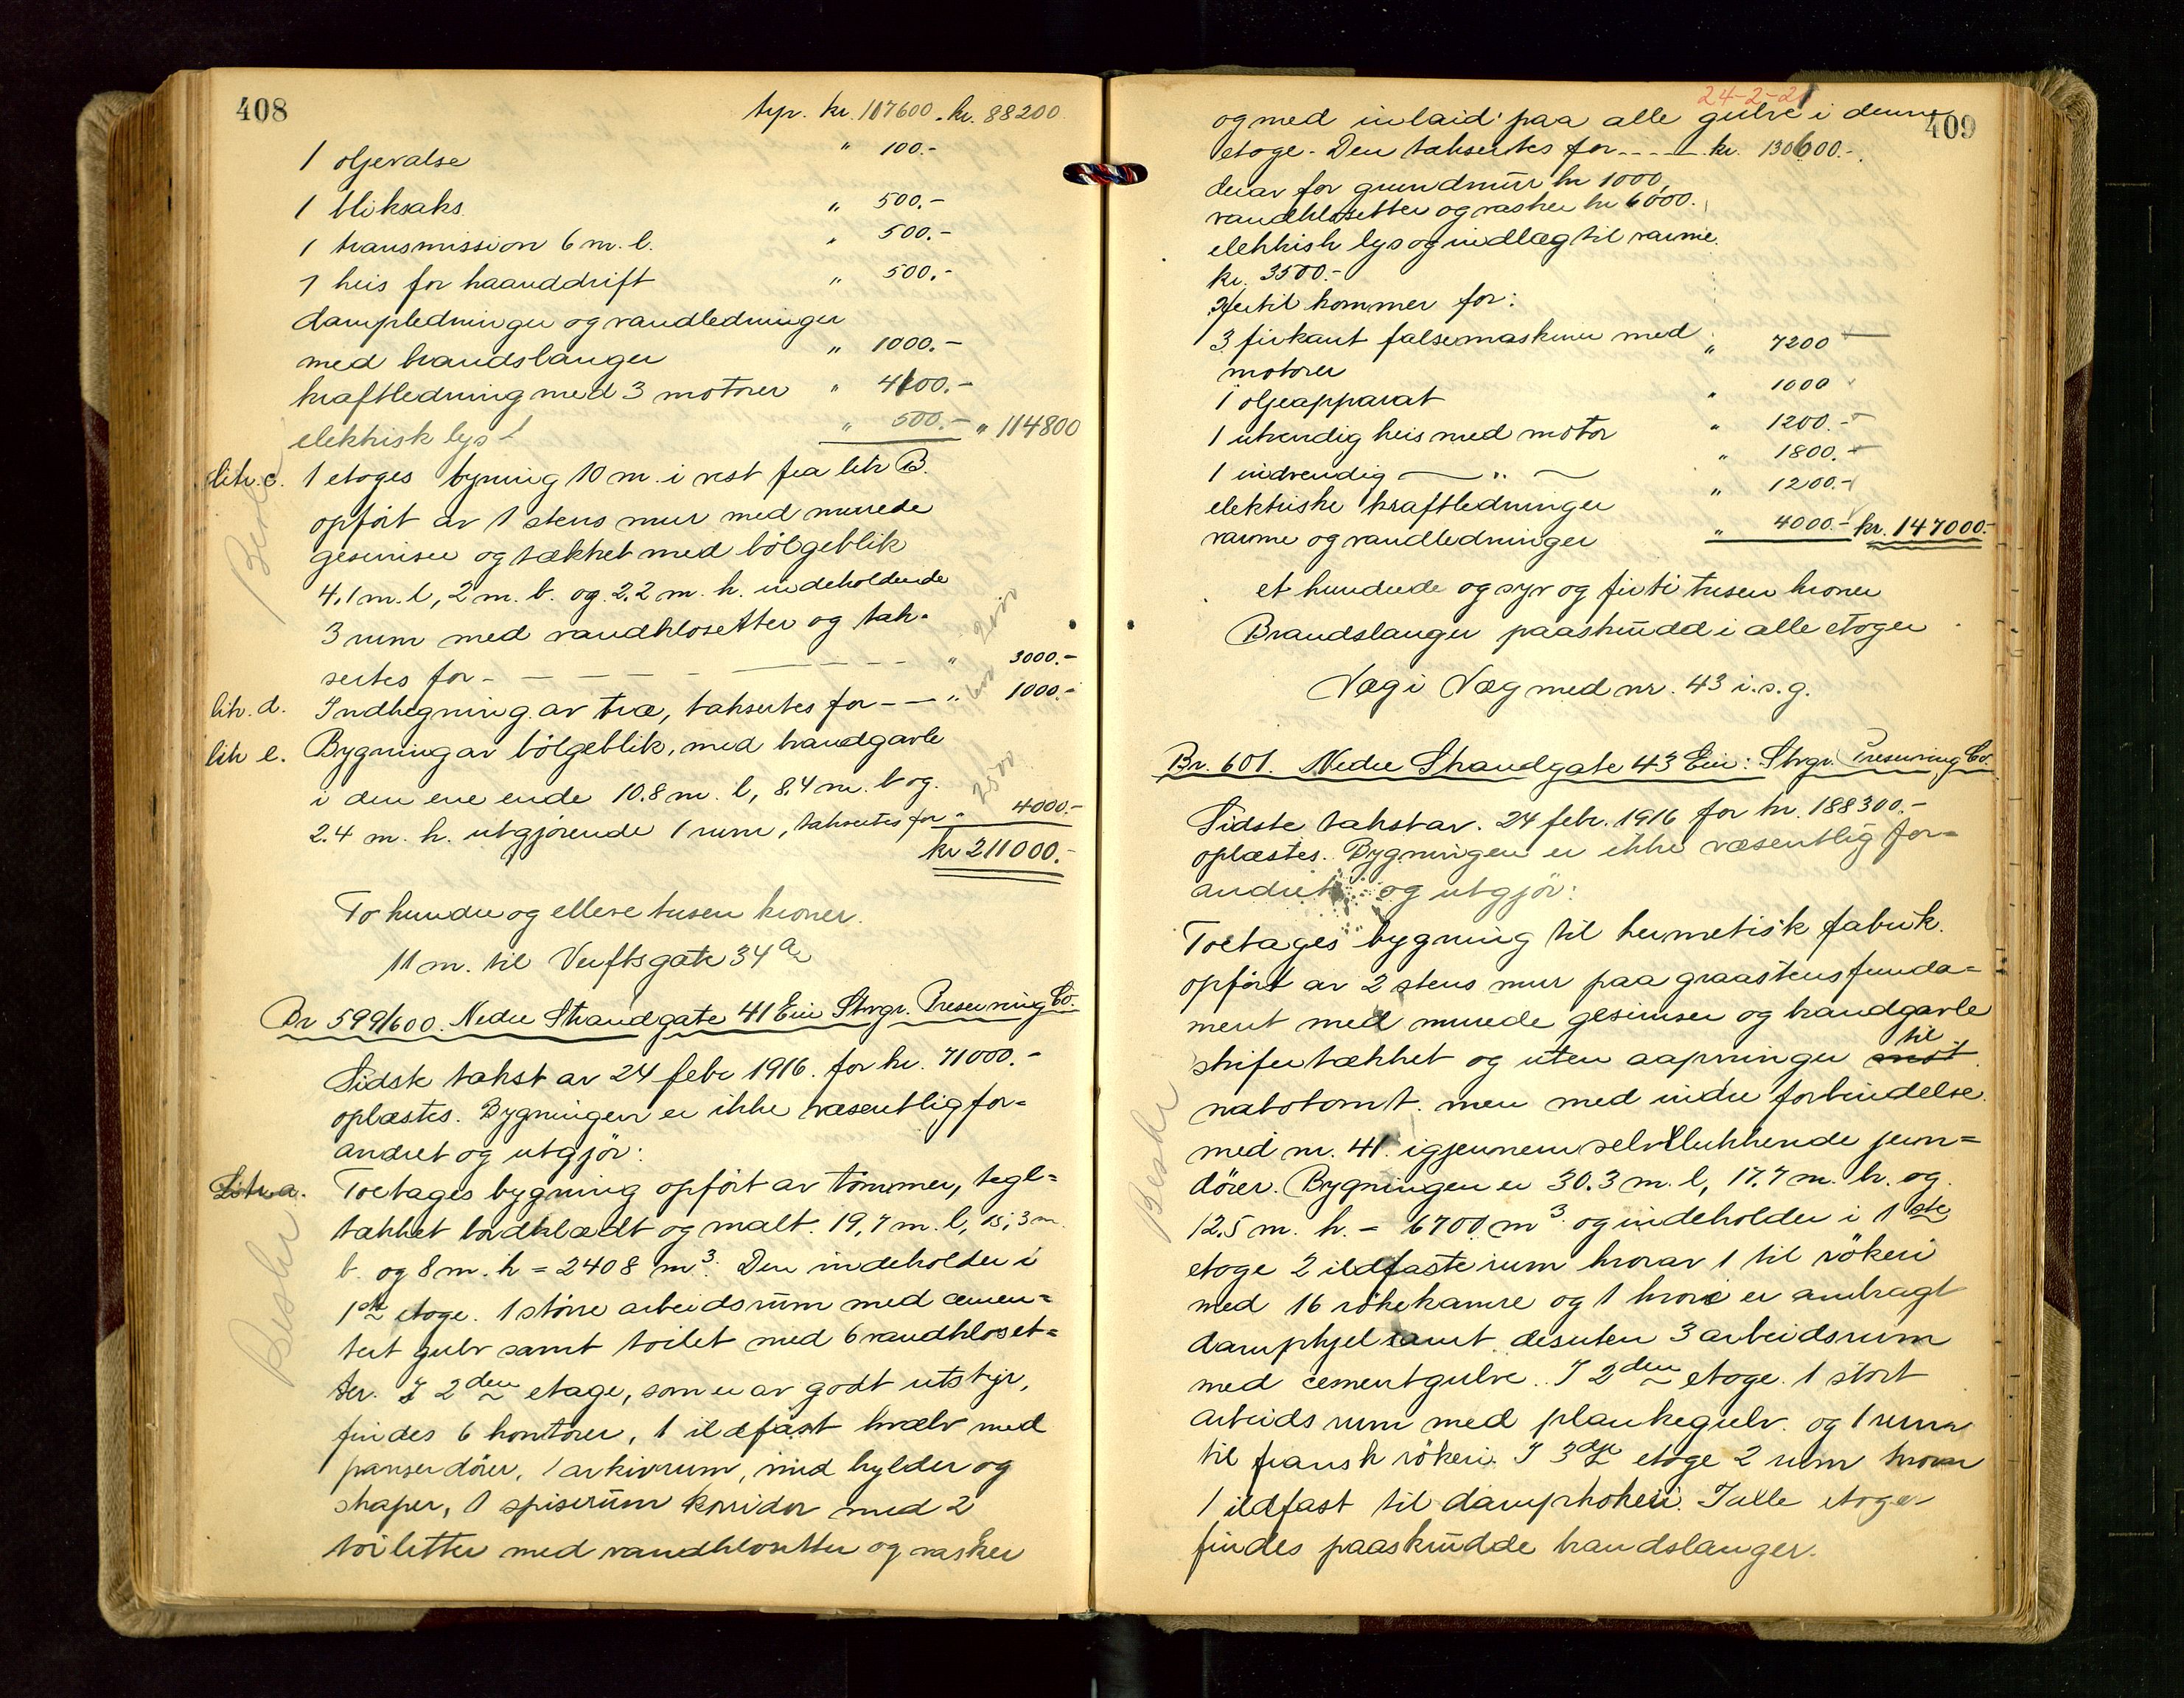 408
trp. kr. 107600.- kr. 88200.
1 oljevalse " 100.-
1 bliksaks " 500.-
1 transmission 6 m. l. " 500.-
1 heis for haanddrift " 500.-
dampledninger og vandledninger
med brandslanger " 1000.-
kraftledning med 3 motorer " 4100.-
elektrisk lys " 500.- " 114800
litr. c. 1 etages bygning 10 m. i vest fra litr B.
opført av 1 stens mur med murede
gesimser og tækket med bölgeblik
4,1 m. l, 2 m. b. og 2,2 m. h. indeholdende
3 rum med vandklosetter og tak-
sertes for - - - - " 3000.-
2000
litr. d. Indhegning av træ, taksertes for - - " 1000.-
600
litr e. Bygning av bölgeblik, med brandgavle
i den ene ende 10.8 m. l, 8,4 m. b og
2500
2.4 m. h. utgjörende 1 rum, taksertes for " 4000.-
kr 211000.-
To hundre og elleve tusen kroner.
11 m. til Verftsgate 34 a
Br 599/600. Nedre Strandgate 41 Eier Stvgr. Preserving Co.
Sidste takst av 24 febr 1916. for kr. 71000.-
oplæstes. Bygningen er ikke væsentlig for-
andret og utgjör:
Litr. a. Toetages bygning opført av tömmer, tegl-
tækket bordklædt og malt. 19,7 m. l, 15,3 m.
b. og 8 m. h = 2408 m³. Den indeholder i
1ste etage. 1 större arbeidsrum med cemen-
tert gulv samt toilet med 6 vandkloset-
ter. I 2den etage, som er av godt utstyr,
findes 6 kontorer, 1 ildfast hvælv med
panserdörer, 1 arkivrum, med hylder og
skaper, 1 spiserum korridor med 2
toiletter med vandklosetter og vasker
Beskr
Beskr
409
24-2-21
og med inlaid paa alle gulve i denne
etage. Den taksertes for - - - - kr. 130600.-
derav for grundmur kr 1000,
vandklosetter og vasker kr 6000.
elektrisk lys og indlæg til varme.
kr. 3500.-
Hertil kommer for:
3 firkant falsemaskiner med
motorer " 7200
1 oljeapparat " 1000
1 utvendig heis med motor " 1200.-
1 indvendig — " — " 1800.-
elektriske kraftledninger " 1200.-
varme og vandledninger " 4000.- kr. 147000.-
et hundrede og syv og firti tusen kroner
Brandslanger paaskrudd i alle etager
Væg i Væg med nr. 43 i. s. g.
Br. 601. Nedre Strandgate 43 Eier: Stvgr. Preserving Co.
Sidste takst av. 24 febr. 1916 for kr. 188300.-
oplæstes. Bygningen er ikke væsentlig for-
andret og utgjör:
Toetages bygning til hermetisk fabrik.
opført av 2 stens mur paa graastensfunda-
ment med murede gesimser og brandgavle
skifertækket og uten aapninger mot til
nabotomt. men med indre forbindelse
med nr. 41 igjennem selvlukkende jern-
dörer. Bygningen er 30.3 m. l, 17.7 m. br. og
12,5 m. h. = 6700 m³ og indeholder i 1ste
etage 2 ildfaste rum hvorav 1 til rökeri
med 16 rökekamre og 1 hvori er anbragt
dampkjel samt desuten 3 arbeidsrum
med cementgulve. I 2den etage. 1 stort
arbeids rum med plankegulv. og 1 rum
til fransk rökeri. I 3dje etage 2 rum hvorav
1 ildfast til dampkokeri. I alle etager
findes paaskrudde brandslanger.
Beskr